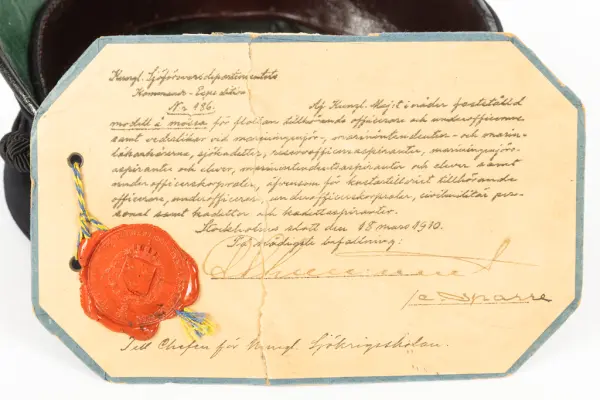 Kungl. Sjöförsvarsdepartementets
Kommando-Expedition
Nr 186.
Af Kungl. Maj:t i nåder fastställd
modell å mössa för flottan tillhörande officerare och underofficerare
samt vederlikar vid mariningenjör-, marinintendentur- och marin-
läkarkårerna, sjökadetter, reservofficersaspiranter, mariningenjörs-
aspiranter och elever, marinintendentsaspiranter och elever samt
underofficerskorpraler, äfvensom för kustartilleriet tillhörande
officerare, underofficerare, underofficerskorpraler, civilmilitär perso-
nal samt kadetter och kadettaspiranter.
Stockholms slott den 18 mars 1910.
På nådigste befallning:
C. Sparre
Till Chefen för Kungl. Sjökrigsskolan.